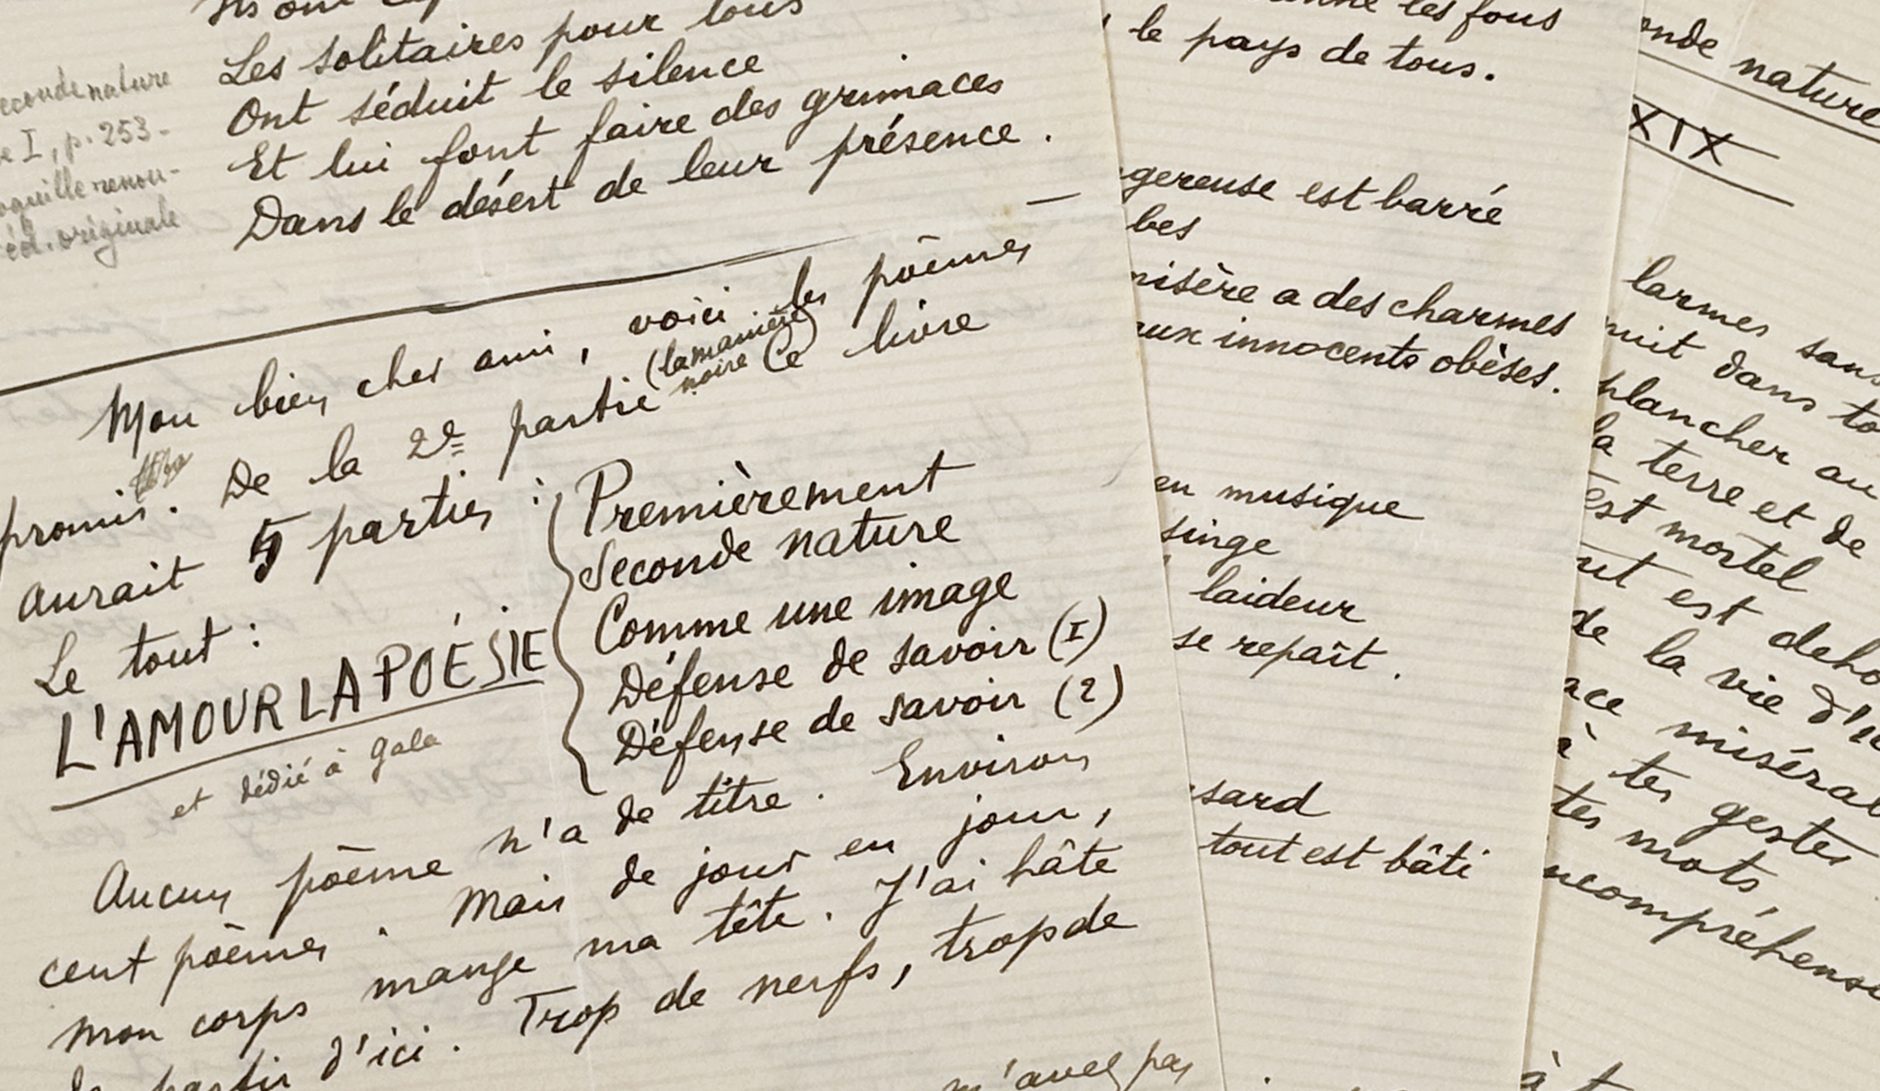 Les solitaires pour tous
Ont séduit le silence
Et lui font faire des grimaces
Dans le désert de leur présence.
econde nature
e I, p. 253-
éd. originale
Mon bien cher ami, voici les poèmes
promis. De la 2e partie (la manière noire) Ce livre
aurait 5 parties :
Le tout :
L'AMOUR LA POÉSIE
et dédié à Gala
Premièrement
Seconde nature
Comme une image
Défense de savoir (I)
Défense de savoir (2)
Aucun poème n'a de titre. Environ
cent poèmes. Mais de jour en jour,
mon corps mange ma tête. J'ai hâte
de partir d'ici. Trop de nerfs, trop de
m'avez pas
les fous
le pays de tous.
gereuse est barré
bes
misère a des charmes
aux innocents obèses.
en musique
singe
laideur
se repaît.
sard
tout est bâti
onde nature
XIX
larmes sans
nuit dans to
plancher au
la terre et de
est mortel
ut est deho
de la vie d'
ace misérab
à tes gestes
tes mots,
ncompréhens
à t